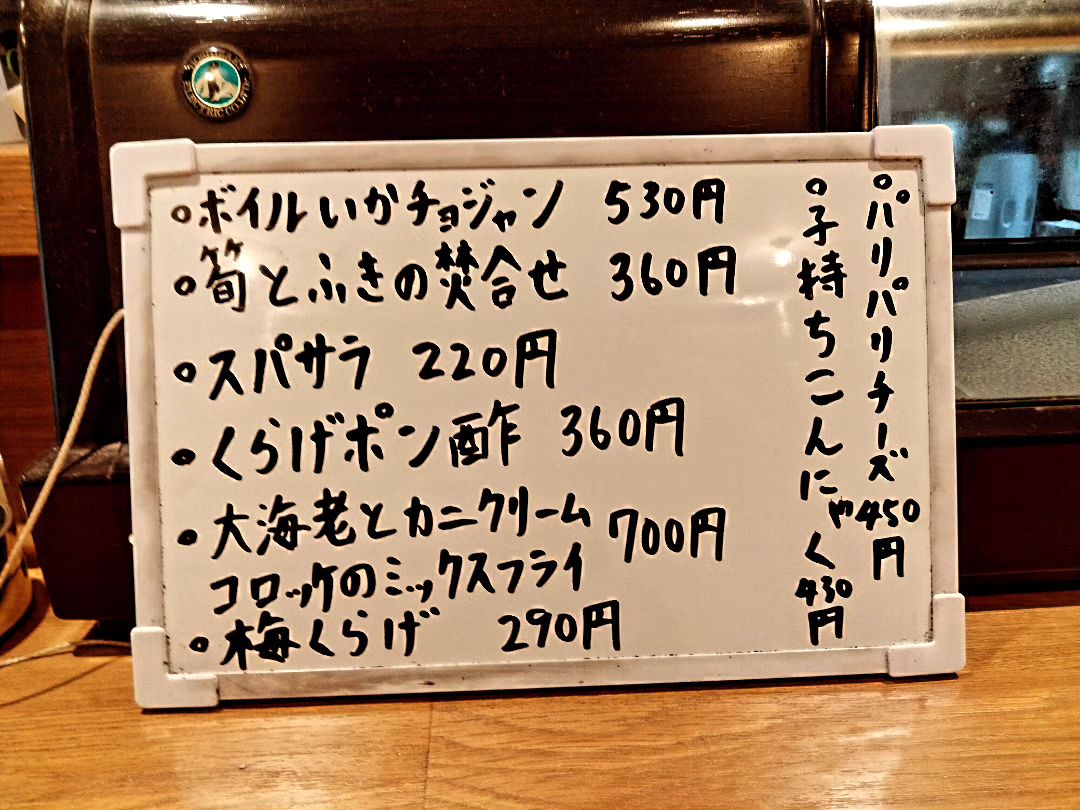 ○ボイルいかチョジャン 530円
○筍とふきの焚合せ 360円
○スパサラ 220円
○くらげポン酢 360円
○大海老とカニクリーム
コロッケのミックスフライ 700円
○梅くらげ 290円
○パリパリチーズ 450円
○子持ちこんにゃく 430円
ELECTRIC CO.LTD